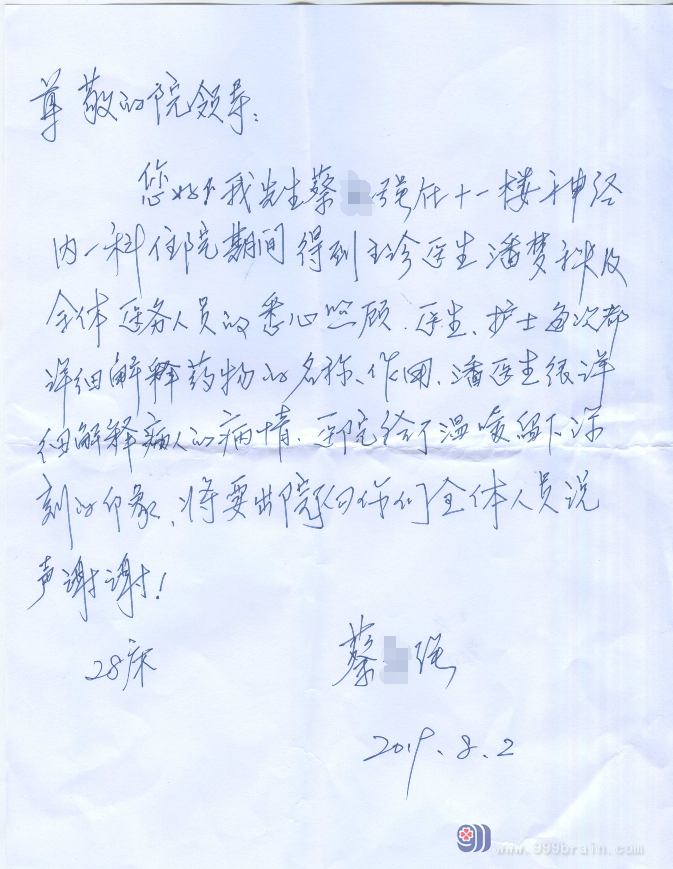 尊敬的院领导:
您好!我先生蔡 强在十一楼神经
内一科住院期间得到主诊医生潘梦秋及
全体医务人员的悉心照顾.医生、护士每次都
详细解释药物的名称、作用.潘医生很详
细解释病人的病情.医院给了温暖留下深
刻的印象、将要出院我向你们全体人员说
声谢谢!
28床 蔡 强
2019.8.2
www.999brain.com